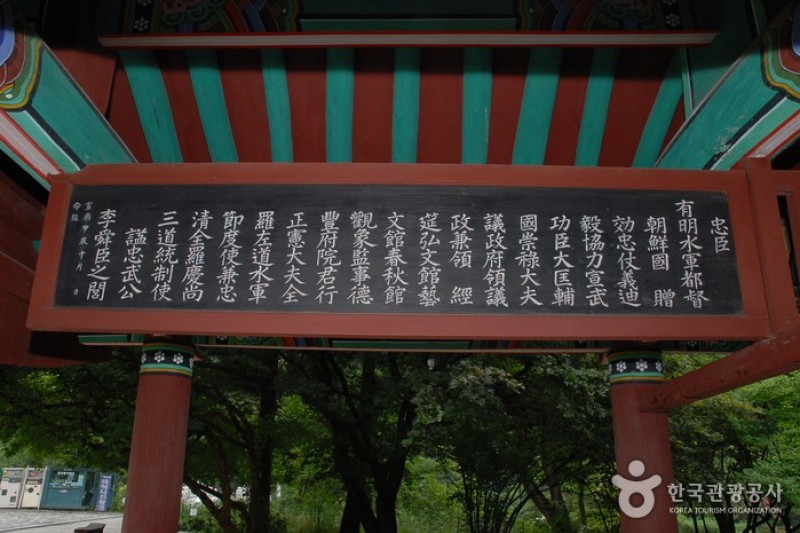 忠臣
有明水軍都督
朝鮮國 贈
効忠仗義迪
毅協力宣武
功臣大匡輔
國崇祿大夫
議政府領議
政兼領 經
筵弘文館藝
文館春秋館
觀象監事德
豐府院君行
正憲大夫全
羅左道水軍
節度使兼忠
清全羅慶尚
三道統制使
諡忠武公
李舜臣之閣
한국관광공사
KOREA TOURISM ORGANIZATION